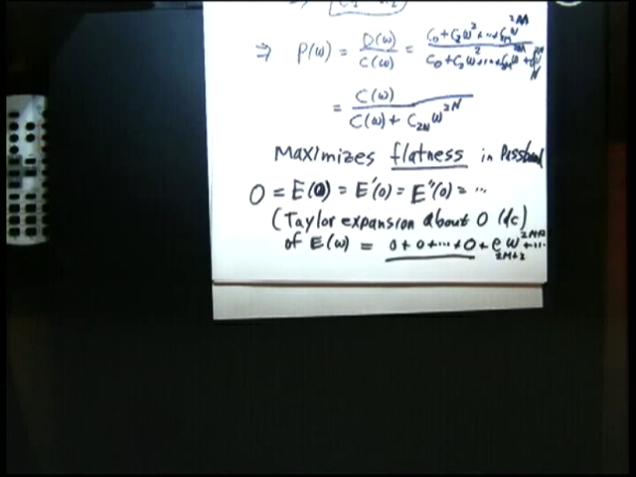 ⇒ P(ω) = D(ω)/C(ω) = C₀+C₂ω²+...C₂ₘω²ᴹ / C₀+C₂ω²+...+C₂ₘω²ᴹ+
= C(ω) / C(ω) + C₂ₙ ω²ᴺ
Maximizes flatness in Passband
0 = E(0) = E'(0) = E''(0) = ...
(Taylor expansion about 0 (dc)
of E(ω) = 0+0+...+0+e₂ₘ₊₂ ω²ᴹ⁺²+...